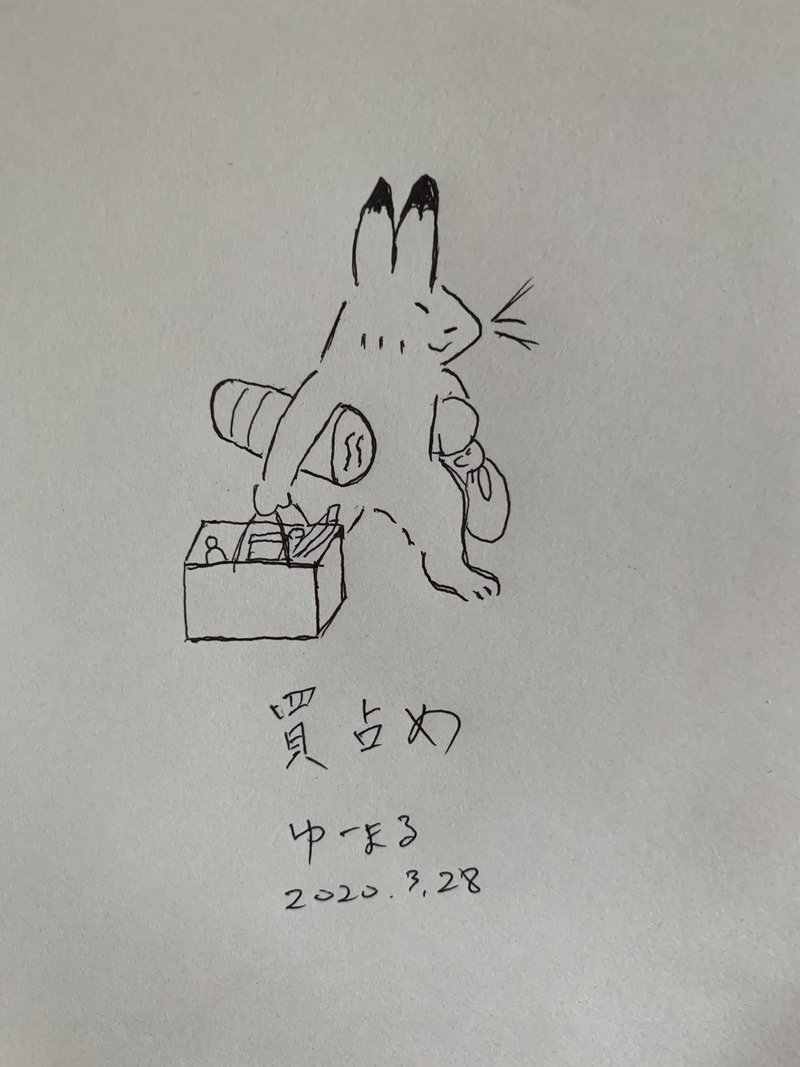 買占め
ゆーまる
2020.3.28